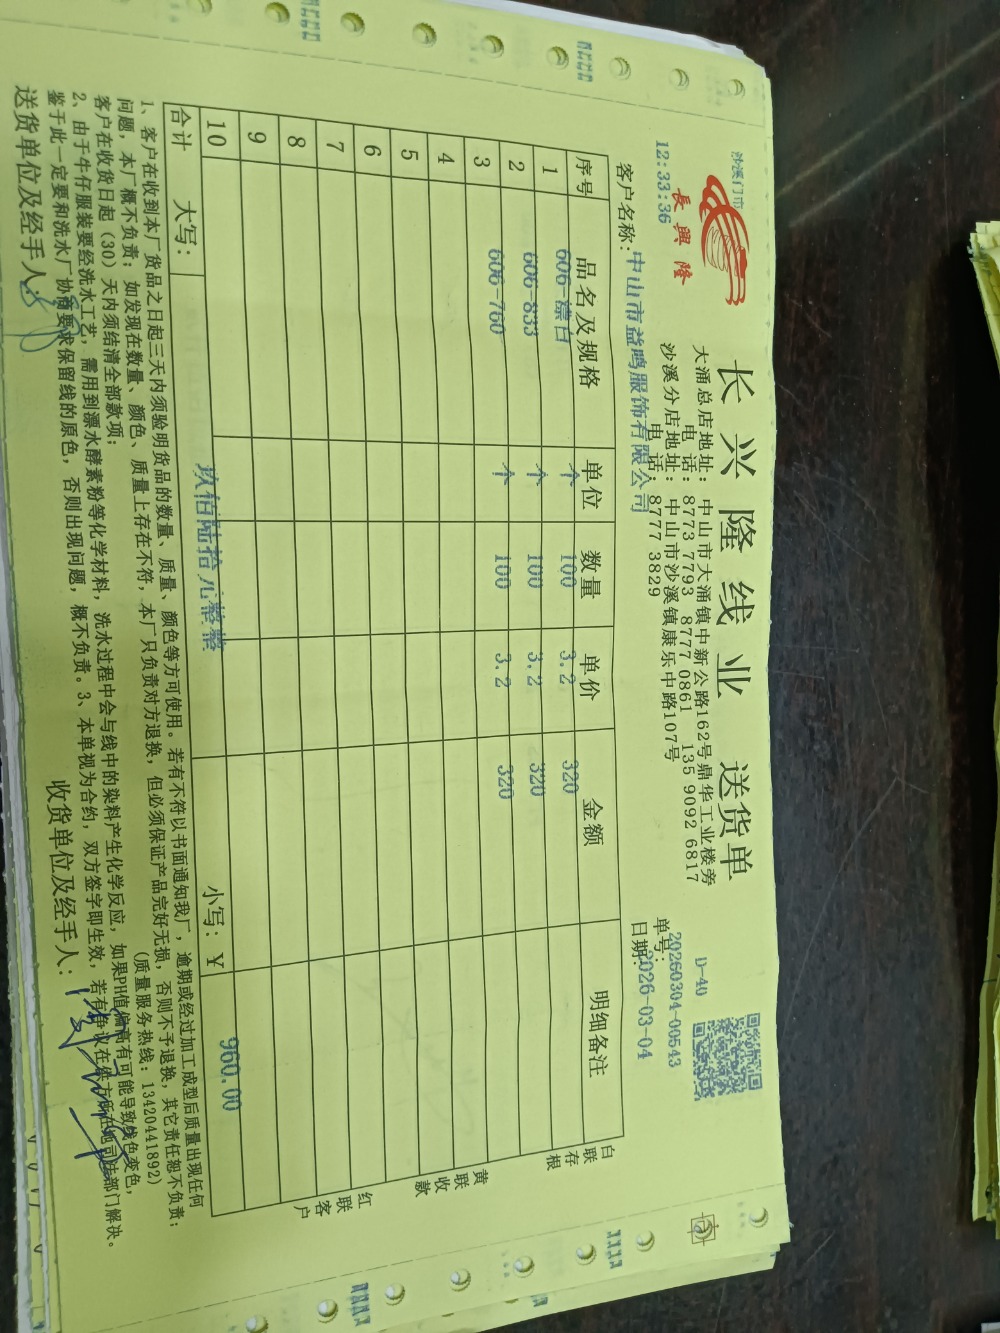 沙溪门市
長興隆
12:33:36
长兴隆线业 送货单
大涌总店地址：中山市大涌镇中新公路162号鼎华工业楼旁
电话：8773 7793 8777 0861 135 9092 6817
沙溪分店地址：中山市沙溪镇康乐中路107号
电话：8777 3829
D-40
单号：20260304-00543
客户名称：中山市益鸣服饰有限公司
日期：2026-03-04
序号 品名及规格 单位 数量 单价 金额 明细备注
1 606-漂白 个 100 3.2 320
2 606-833 个 100 3.2 320
3 606-760 个 100 3.2 320
4
5
6
7
8
9
10
合计 大写： 玖佰陆拾元整整 小写：￥ 960.00
白联存根
黄联收款
红联客户
1、客户在收到本厂货品之日起三天内须验明货品的数量、质量、颜色等方可使用。若有不符以书面通知我厂，逾期或经过加工成型后质量出现任何
问题，本厂概不负责；如发现在数量、颜色、质量上存在不符，本厂只负责对方退换，但必须保证产品完好无损，否则不予退换，其它责任恕不负责；
客户在收货日起（30）天内须结清全部款项； （质量服务热线：13420441892）
2、由于牛仔服装要经洗水工艺，需用到漂水酵素粉等化学材料，洗水过程中会与线中的染料产生化学反应，如果PH值偏高有可能导致线色变色，
鉴于此一定要和洗水厂协商要求保留线的原色，否则出现问题，概不负责。3、本单视为合约，双方签字即生效，若有争议在供方所在地司法部门解决。
送货单位及经手人： 收货单位及经手人：